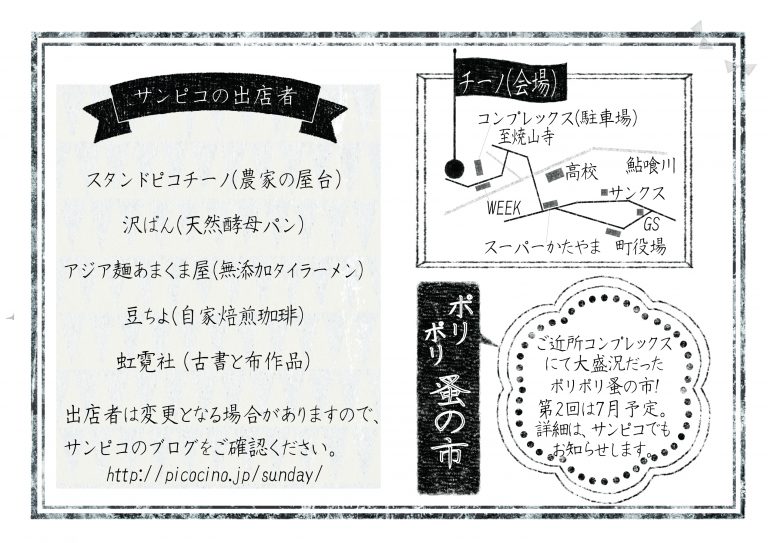 サンピコの出店者
スタンドピコチーノ(農家の屋台)
沢ぱん(天然酵母パン)
アジア麺あまくま屋(無添加タイラーメン)
豆ちよ(自家焙煎珈琲)
虹霓社 (古書と布作品)
出店者は変更となる場合がありますので、
サンピコのブログをご確認ください。
http://picocino.jp/sunday/
チーノ(会場)
コンプレックス(駐車場)
至焼山寺
高校
鮎喰川
サンクス
WEEK
GS
スーパーかたやま
町役場
ポリ
ポリ
蚤の市
ご近所コンプレックス
にて大盛況だった
ポリポリ蚤の市!
第2回は7月予定。
詳細は、サンピコでも
お知らせします。